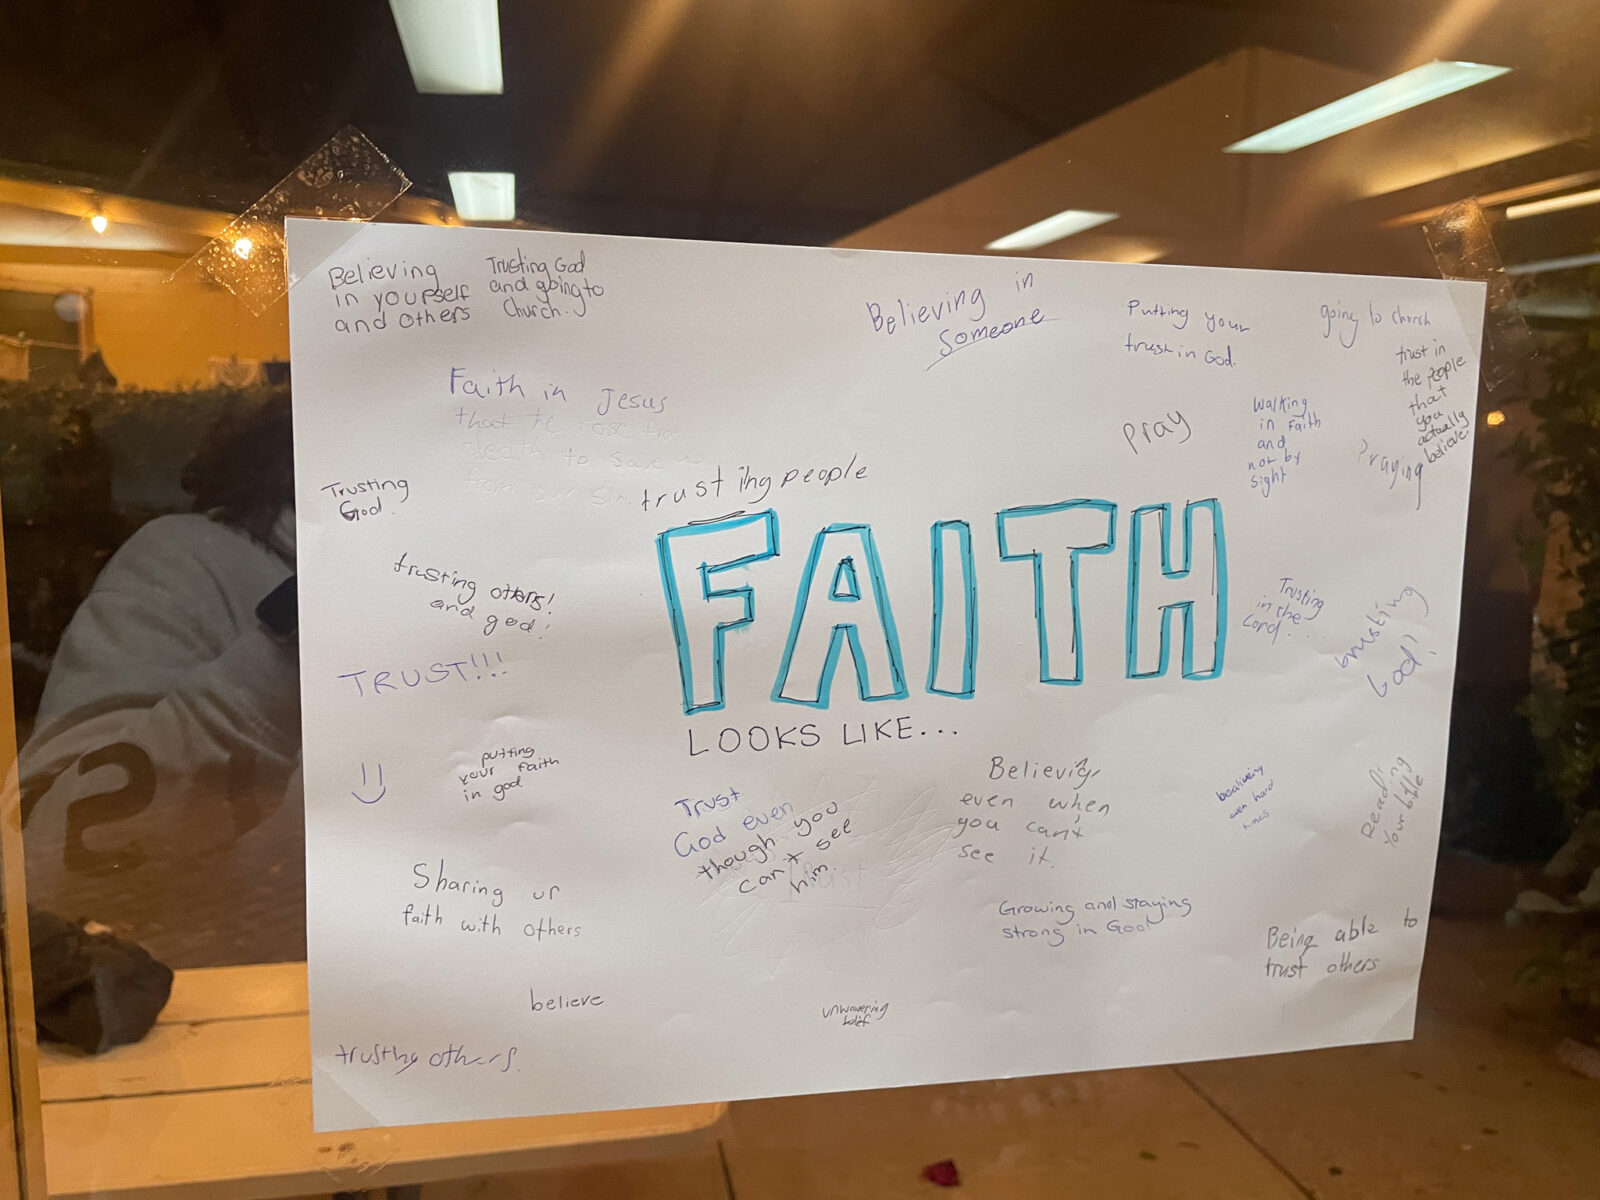 Believing
in yourself
and others
Trusting God
and going to
Church.
Believing in
Someone
Putting your
trust in God.
going to church
trust in
the people
that
you
actually
believe.
Faith in Jesus
that he rose from
death to save
from sin
Pray
Walking
in Faith
and
not by
sight
Praying
Trusting
God.
trusting people
FAITH
LOOKS LIKE...
trusting others!
and god!
Trusting
in the
Lord.
trusting
God!
TRUST!!!
putting
your faith
in god
Trust
God even
though you
can't see
him
Believing
even when
you can't
see it.
bealiveing
even hard
times
Reading
Your bible
Sharing ur
faith with others
Growing and staying
strong in God
Being able to
trust others
believe
unwavering
belief
trusting others.
S